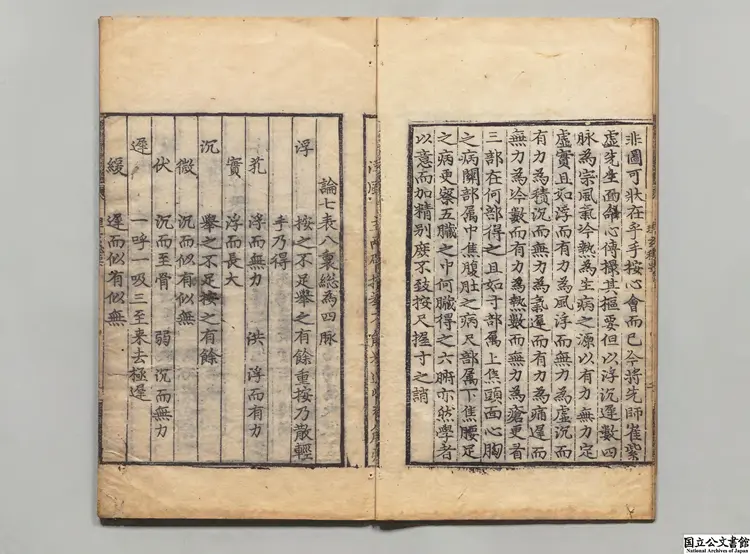 非圖可狀在乎手按心會而已今將先師崔紫
虛先生面命心傳撮其樞要但以浮沉遲數四
脉為宗風氣冷熱為生病之源以有力無力定
虛實且如浮而有力為風浮而無力為虛沉而
有力為積沉而無力為氣遲而有力為痛遲而
無力為冷數而有力為熱數而無力為瘡更看
三部在何部得之且如寸部属上焦頭面心胸
之病關部属中焦腹肚之病尺部属下焦腰足
之病更察五臟之中何臟得之六腑亦然學者
以意而加精別庶不致按尺握寸之誚
論七表八裏總為四脉
浮 按之不足舉之有餘重按乃散輕
手乃得
芤 浮而無力 洪 浮而有力
實 浮而長大
沉 舉之不足按之有餘
微 沉而似有似無
伏 沉而至骨 弱 沉而無力
遲 一呼一吸三至来去極遲
緩 遲而似有似無
国立公文書館
National Archives of Japan